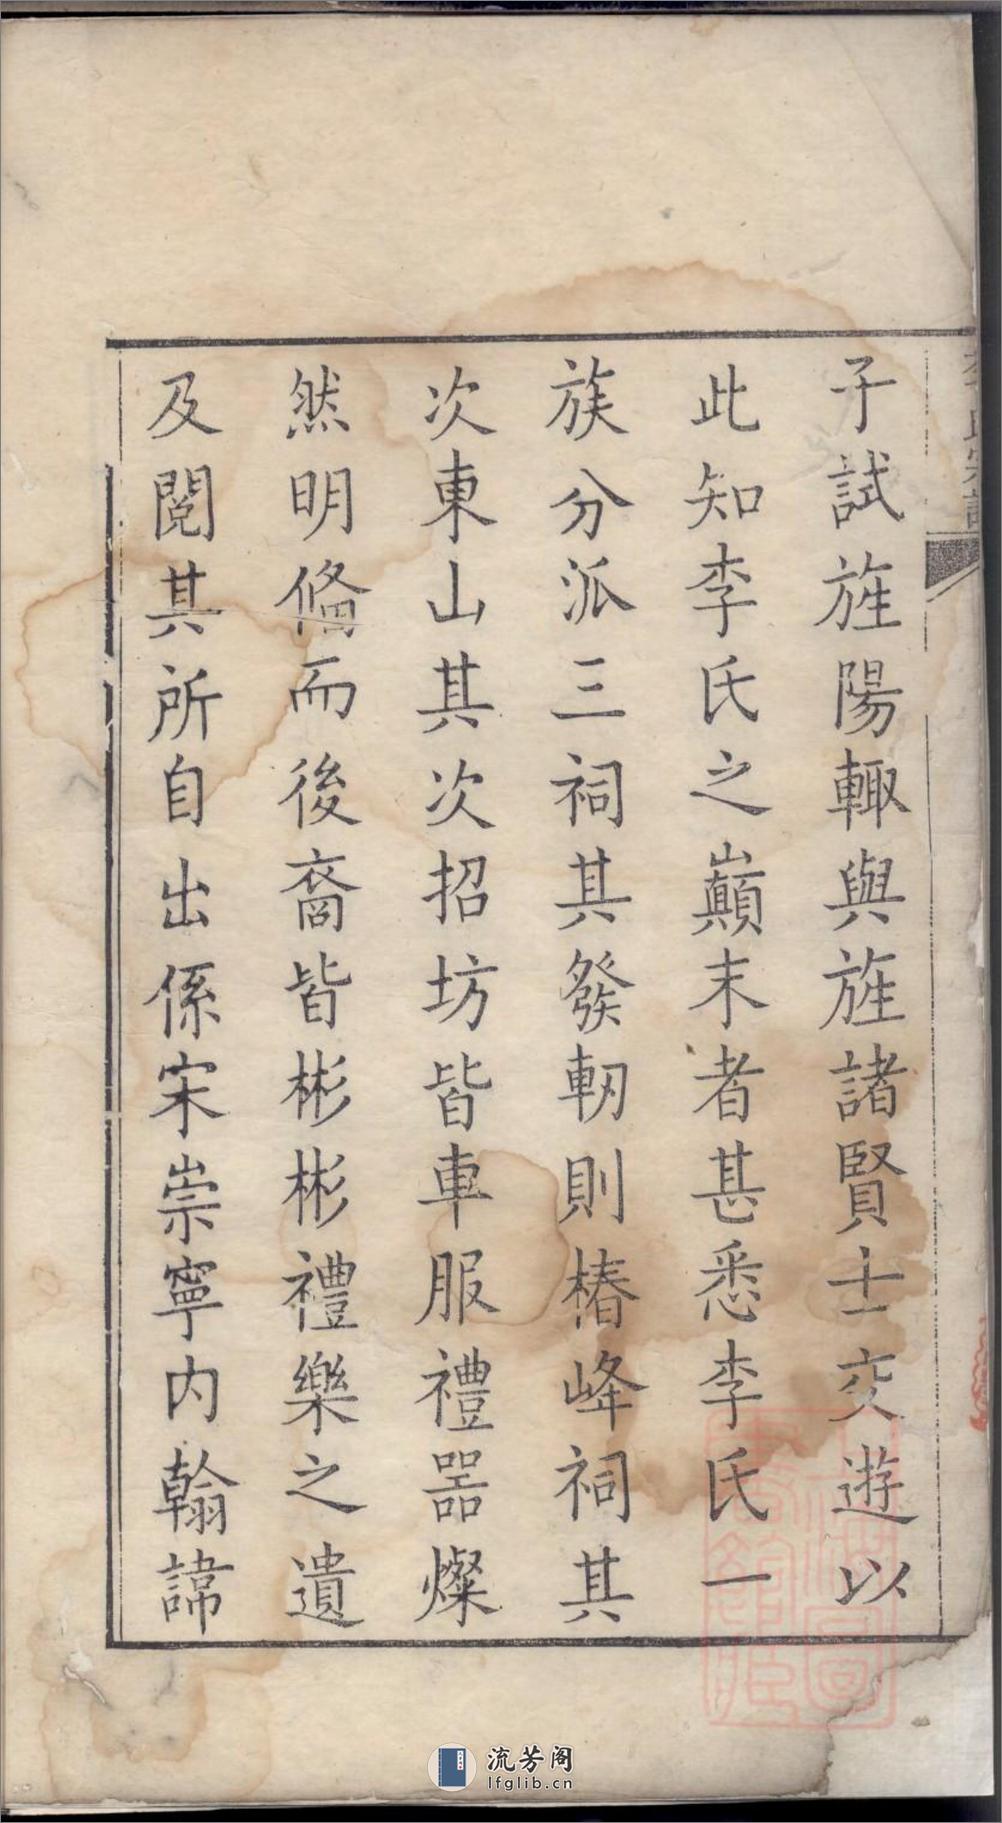 子試旌陽輙與旌諸賢士交遊以
此知李氏之巔末者甚悉李氏一
族分派三祠其發軔則椿峰祠其
次東山其次招坊皆車服禮器燦
然明脩而後裔皆彬彬禮樂之遺
及閱其所自出係宋崇寧内翰諱
李氏宗譜
流芳阁
lfglib.cn